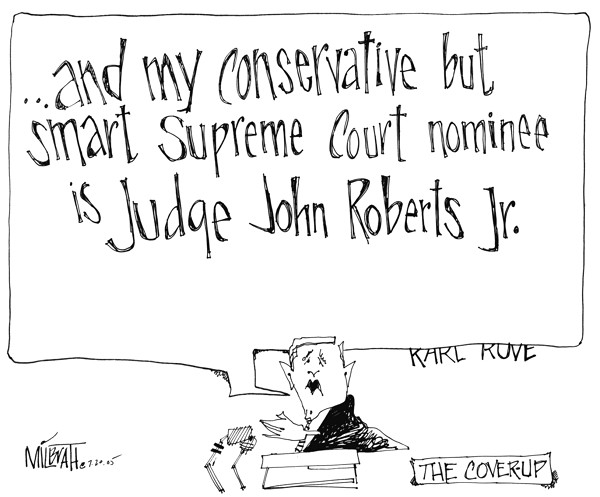 ...and my conservative but
smart Supreme Court nominee
is Judge John Roberts Jr.
KARL ROVE
MILBRATH 7.20.05
THE COVERUP